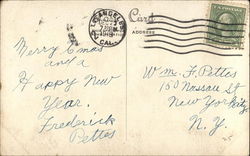 Card
ADDRESS
LOS ANGELES
CAL.
Merry Xmas
and a
Happy New
Year.
Frederick
Pettes
Wm. F. Pettes
150 Nassau St
New York City
N. Y.